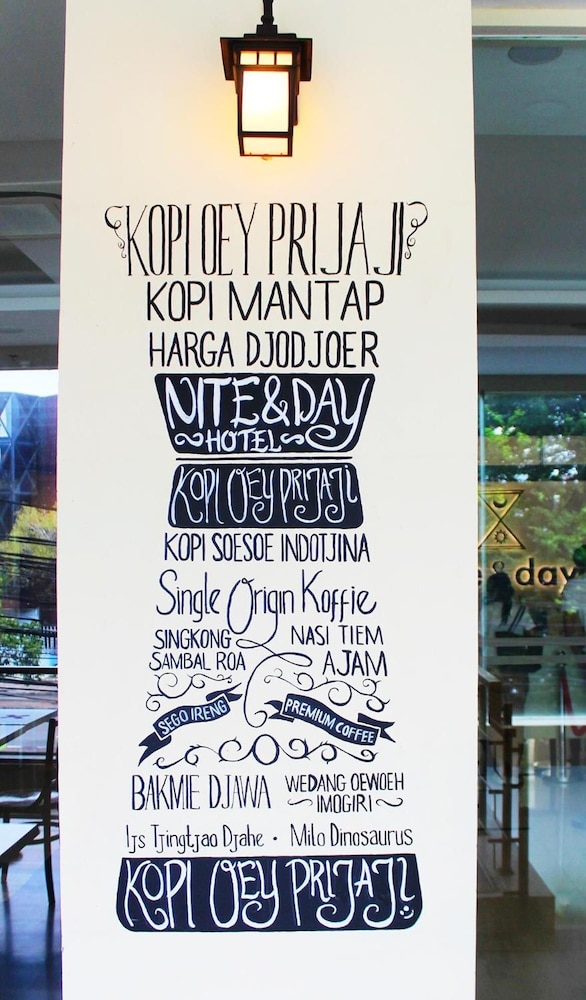 KOPI OEY PRIJAJI
KOPI MANTAP
HARGA DJODJOER
NITE & DAY
HOTEL
KOPI OEY PRIJAJI
KOPI SOESOE INDOTJINA
Single Origin Koffie
SINGKONG
SAMBAL ROA
NASI TIEM
AJAM
SEGO IRENG
PREMIUM COFFEE
BAKMIE DJAWA
WEDANG OEWOEH
IMOGIRI
Ijs Tjingtjao Djahe • Milo Dinosaurus
KOPI OEY PRIJAJI
& day